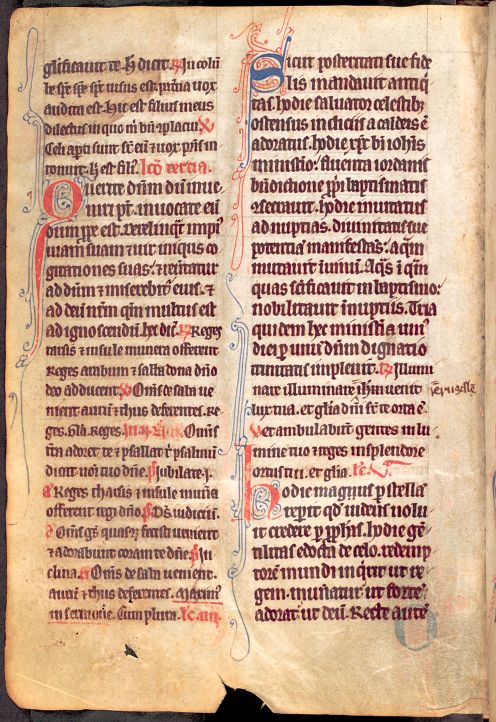 glificauit te. h dicit. R In colu
be spe spe spc uisus est. pat'na uox
audita est. hic est filius meus
dilectus in quo m bn 9placui. V
Celi apti sunt sr eu 7 uox pat'ns in
tonuit. h est fili'. Lco tercia.
Querite dnm du inue
niri pt. inuocate eu
dum ppe est. Derelinqt impi'
uiam suam 7 uir iniqus co
gitationes suas. 7 reutatur
ad dnm 7 miserebit' eius. 7
ad deu nrm qm multus est
ad ignoscendu. hec dic. R Reges
tarsis 7 insule munera offerent
Reges arabum 7 saba dona dno
deo adducent. V Oms de saba ue
nient auru 7 thus deferentes. Re
ges. Gla. Reges. Oms
tra adoret te 7 psallat t' psalmu
dicat noi tuo dne. Ps Iubilate.
a Reges tharsis 7 insule mun'a
offerent regi dno. Ps Ds iudiciu.
a Oms gs quascq; fecisti uenient
7 adorabunt coram te dne. Ps In
clina. a Oms de saba uenient.
auru 7 thus deferentes. Maximi
in sermone. Cum plura. Lc. iiii.
Sicut posteritati sue fide
lis mandauit antiq
tas. hodie saluator celestib;
ostensus indiciis a caldeis e
adoratus. hodie xpc bi iohis
ministio. fluenta iordanis
bndictione ppi baptismatis
9secrauit. hodie inuitatus
ad nuptias. diuinitatis sue
potentia manifestas. aqm
mutauit i uinu. Aqs i qm
quas scificauit in baptismo.
nobilitauit i nuptiis. Tria
quidem hec ministia uni'
diei p unu dnm dignatio
t'nitatis impleuit. R Illumi
nare illuminare ihrm uenit
ierusale
lux tua. et glia dni sr te orta e.
V Et ambulabunt gentes in lu
mine tuo 7 reges in splendore
ortus tui. et glia. Lc. V.
Hodie magnus p stella
repit qd iudeus nolu
it credere p pphas. hodie ge
tilitas edocta de celo. redemp
tore mundi inqrit ut re
gem. inuenitur ut forte
adorat ut deu. Recte aute